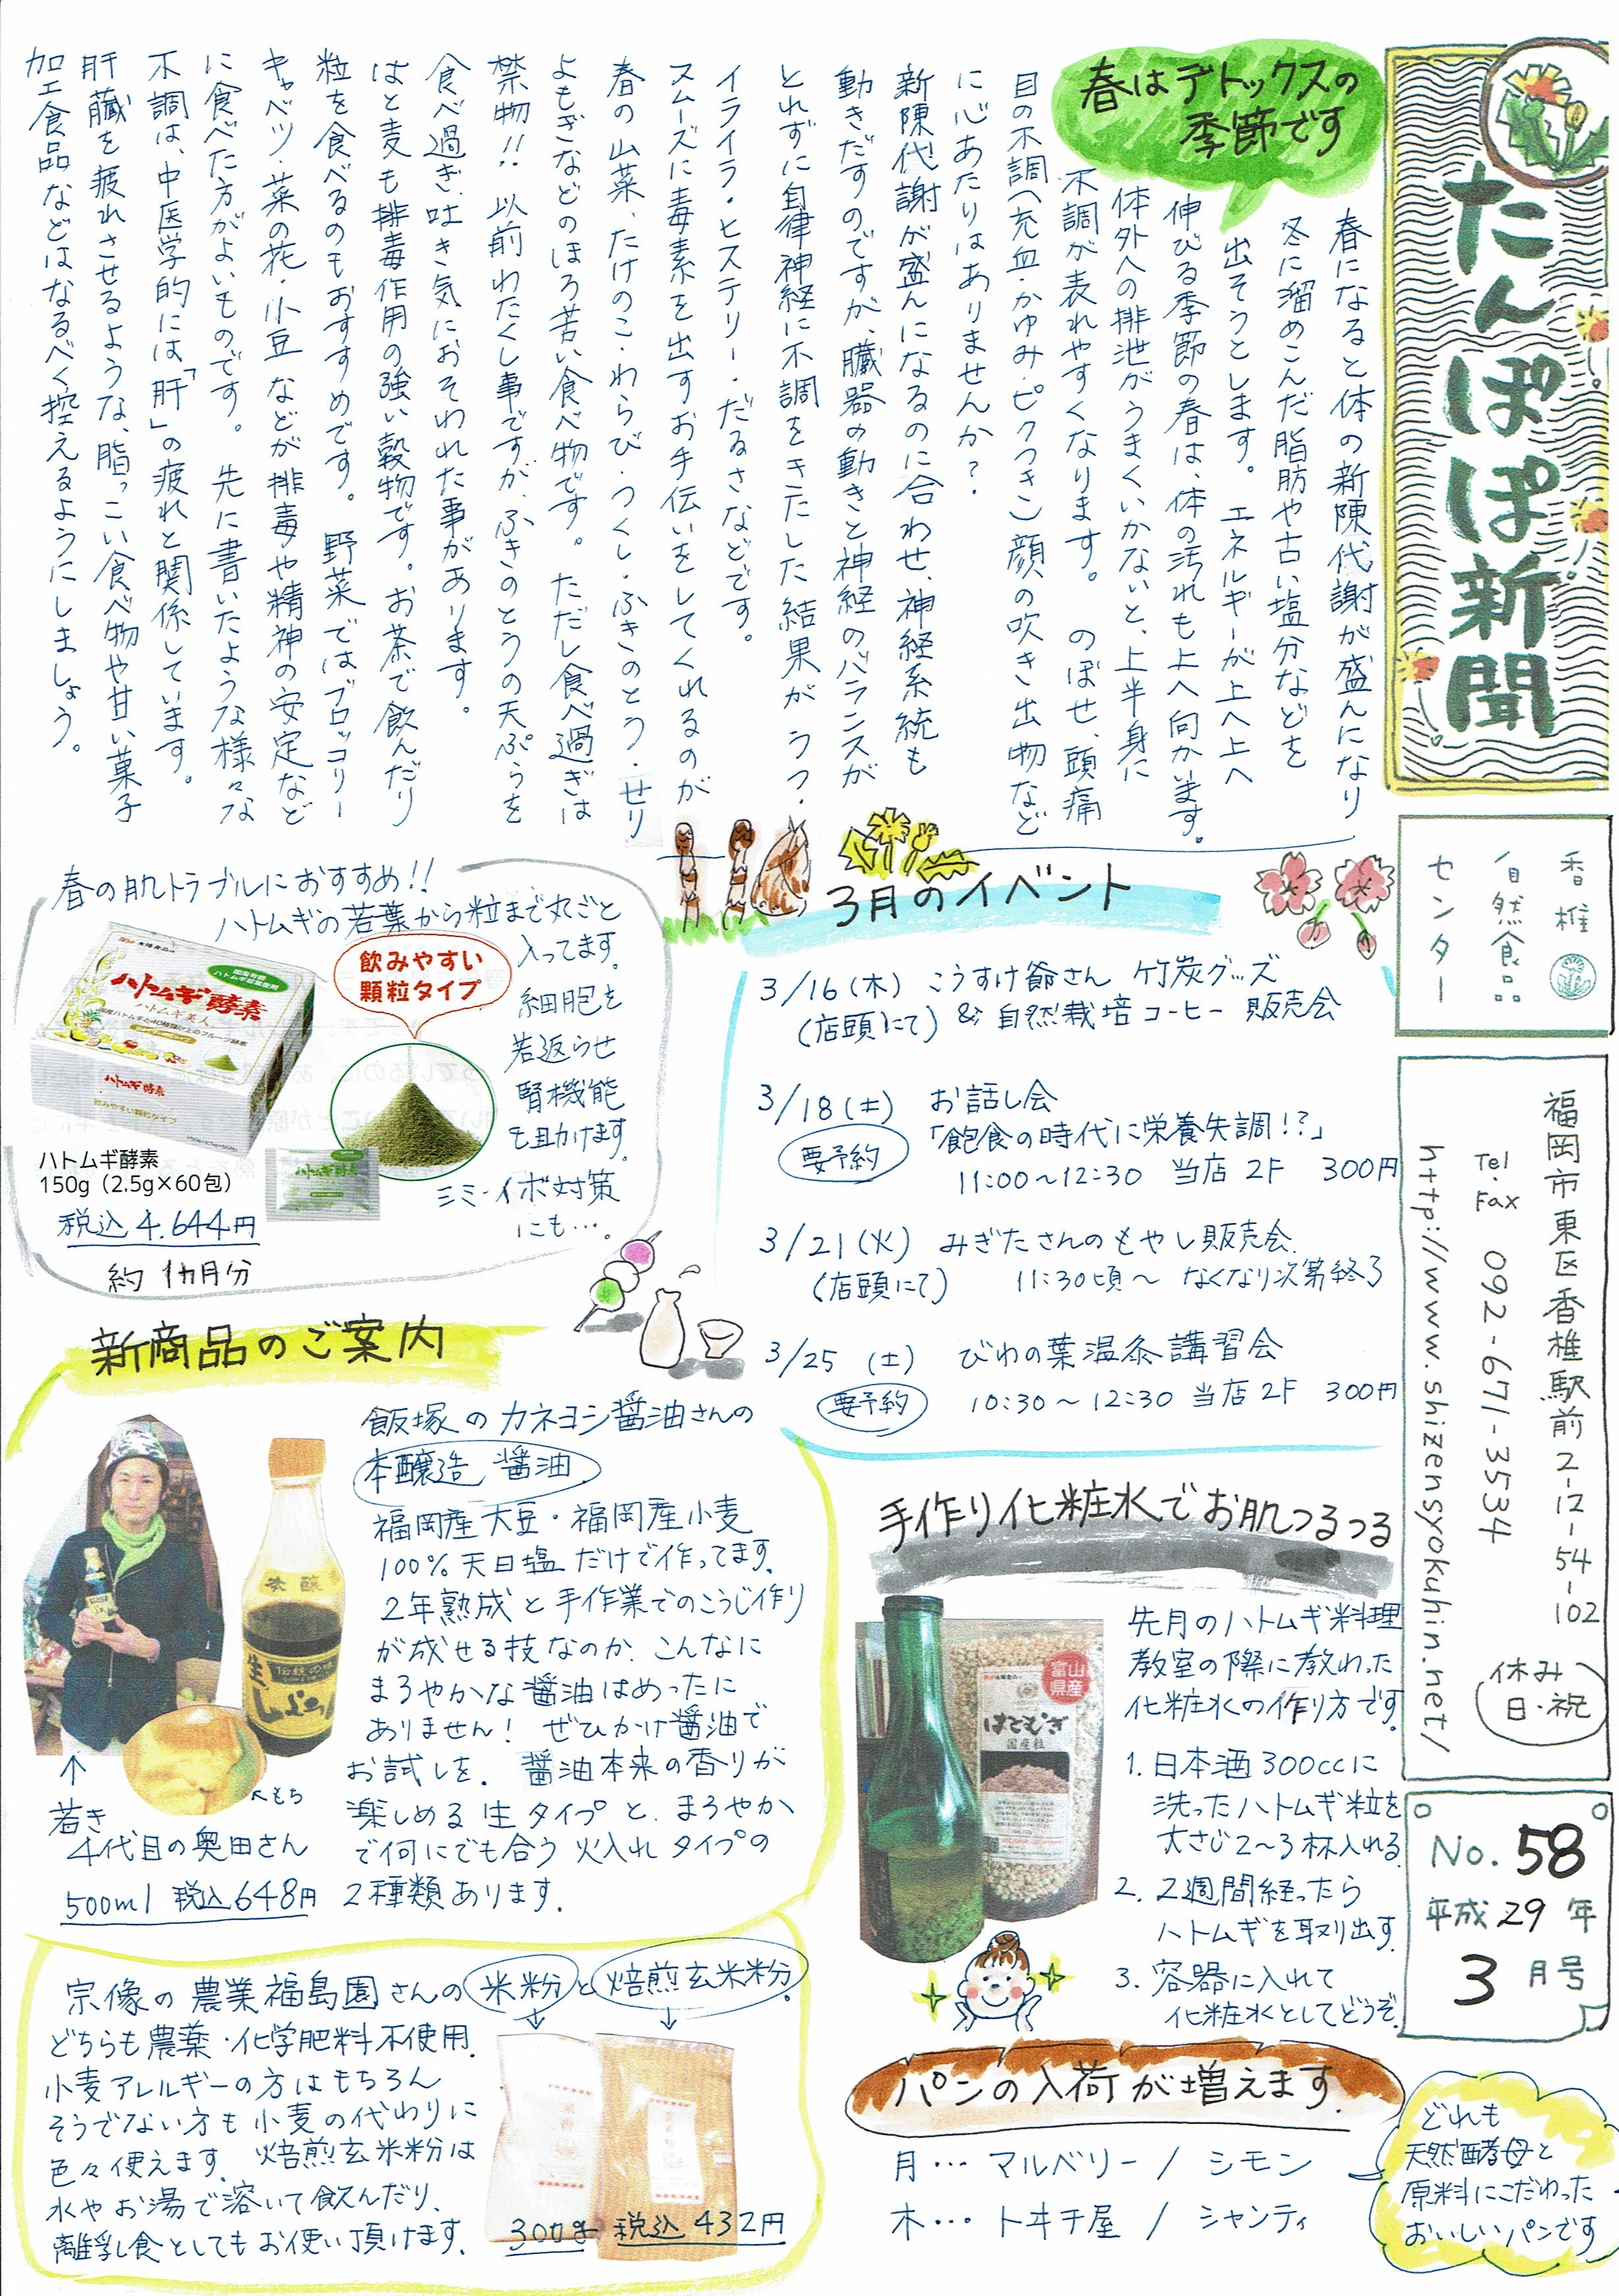 たんぽぽ新聞
香椎
自然食品
センター
福岡市東区香椎駅前2-12-54-102
Tel.
Fax 092-671-3534
http://www.shizensyokuhin.net/
休み
日・祝
No.58
平成29年
3月号
春はデトックスの
季節です
春になると体の新陳代謝が盛んになり
冬に溜めこんだ脂肪や古い塩分などを
出そうとします。 エネルギーが上へ上へ
伸びる季節の春は、体の汚れも上へ向かいます。
体外への排泄がうまくいかないと、上半身に
不調が表れやすくなります。 のぼせ、頭痛
目の不調(充血・かゆみ・ピクつき) 顔の吹き出物など
に心あたりはありませんか?
新陳代謝が盛んになるのに合わせ、神経系統も
動きだすのですが、臓器の動きと神経のバランスが
とれずに自律神経に不調をきたした結果が うつ・
イライラ・ヒステリー・だるさなどです。
スムーズに毒素を出すお手伝いをしてくれるのが
春の山菜、たけのこ・わらび・つくし・ふきのとう・せり
よもぎなどのほろ苦い食べ物です。 ただし食べ過ぎは
禁物!! 以前わたくし事ですが、ふきのとうの天ぷらを
食べ過ぎ、吐き気におそわれた事があります。
はと麦も排毒作用の強い穀物です。お茶で飲んだり
粒を食べるのもおすすめです。 野菜ではブロッコリー
キャベツ・菜の花・小豆などが排毒や精神の安定など
に食べた方がよいものです。 先に書いたような様々な
不調は、中医学的には「肝」の疲れと関係しています。
肝臓を疲れさせるような、脂っこい食べ物や甘い菓子
加工食品などはなるべく控えるようにしましょう。
3月のイベント
3/16(木) こうすけ爺さん 竹炭グッズ
(店頭にて) & 自然栽培コーヒー 販売会
3/18(土) お話し会
要予約 「飽食の時代に栄養失調!?」
11:00〜12:30 当店2F 300円
3/21(火) みぎたさんのもやし販売会
(店頭にて) 11:30頃〜 なくなり次第終了
3/25(土) びわの葉温灸講習会
要予約 10:30〜12:30 当店2F 300円
春の肌トラブルにおすすめ!!
ハトムギの若葉から粒まで丸ごと
入ってます。
細胞を
若返らせ
腎機能
を助けます。
シミ・イボ対策
にも…。
飲みやすい
顆粒タイプ
ハトムギ酵素
ハトムギ美人
飲みやすい顆粒タイプ
ハトムギ酵素
ハトムギ酵素
150g(2.5g×60包)
税込4,644円
約1カ月分
新商品のご案内
飯塚のカネヨシ醤油さんの
本醸造 醤油
福岡産大豆・福岡産小麦
100%天日塩だけで作ってます。
2年熟成と手作業でのこうじ作り
が成せる技なのか、こんなに
まろやかな醤油はめったに
ありません! ぜひかけ醤油で
お試しを。 醤油本来の香りが
楽しめる生タイプと、まろやか
で何にでも合う火入れタイプの
2種類あります。
もち
若き
4代目の奥田さん
500ml 税込648円
宗像の農業福島園さんの米粉と焙煎玄米粉。
どちらも農薬・化学肥料不使用。
小麦アレルギーの方はもちろん
そうでない方も小麦の代わりに
色々使えます。 焙煎玄米粉は
水やお湯で溶いて飲んだり、
離乳食としてもお使い頂けます。
300g 税込432円
手作り化粧水でお肌つるつる
富山
県産
はとむぎ
国産粒
先月のハトムギ料理
教室の際に教わった
化粧水の作り方です。
1. 日本酒300ccに
洗ったハトムギ粒を
大さじ2〜3杯入れる。
2. 2週間経ったら
ハトムギを取り出す。
3. 容器に入れて
化粧水としてどうぞ。
パンの入荷が増えます。
月… マルベリー / シモン
木… トヰチ屋 / シャンティ
どれも
天然酵母と
原料にこだわった
おいしいパンです